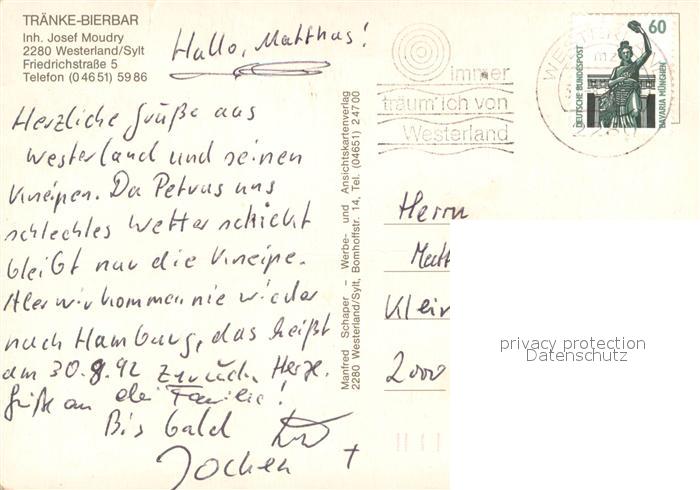 TRÄNKE-BIERBAR
Inh. Josef Moudry
2280 Westerland/Sylt
Friedrichstraße 5
Telefon (0 46 51) 59 86
Hallo, Matthas!
Herzliche Grüße aus
Westerland und seinen
Kneipen. Da Petrus uns
schlechtes Wetter schickt
bleibt nur die Kneipe.
Aber wir kommen nie wieder
nach Hamburg, das heißt
am 30.8.92 zurück. Herzl.
Grüße an die Familie!
Bis bald
Jochen
Manfred Schaper – Werbe- und Ansichtskartenverlag
2280 Westerland/Sylt, Bomhoffstr. 14, Tel. (04651) 2 47 00
immer
träum'ich von
Westerland
60
DEUTSCHE BUNDESPOST
BAVARIA MÜNCHEN
Herrn
Matt
Klein
2000
privacy protection
Datenschutz